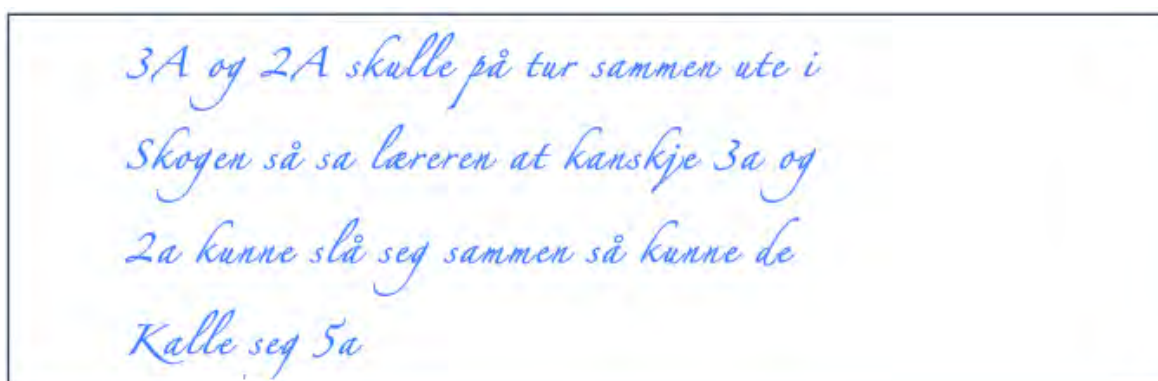 3A og 2A skulle på tur sammen ute i
Skogen så sa læreren at kanskje 3a og
2a kunne slå seg sammen så kunne de
Kalle seg 5a